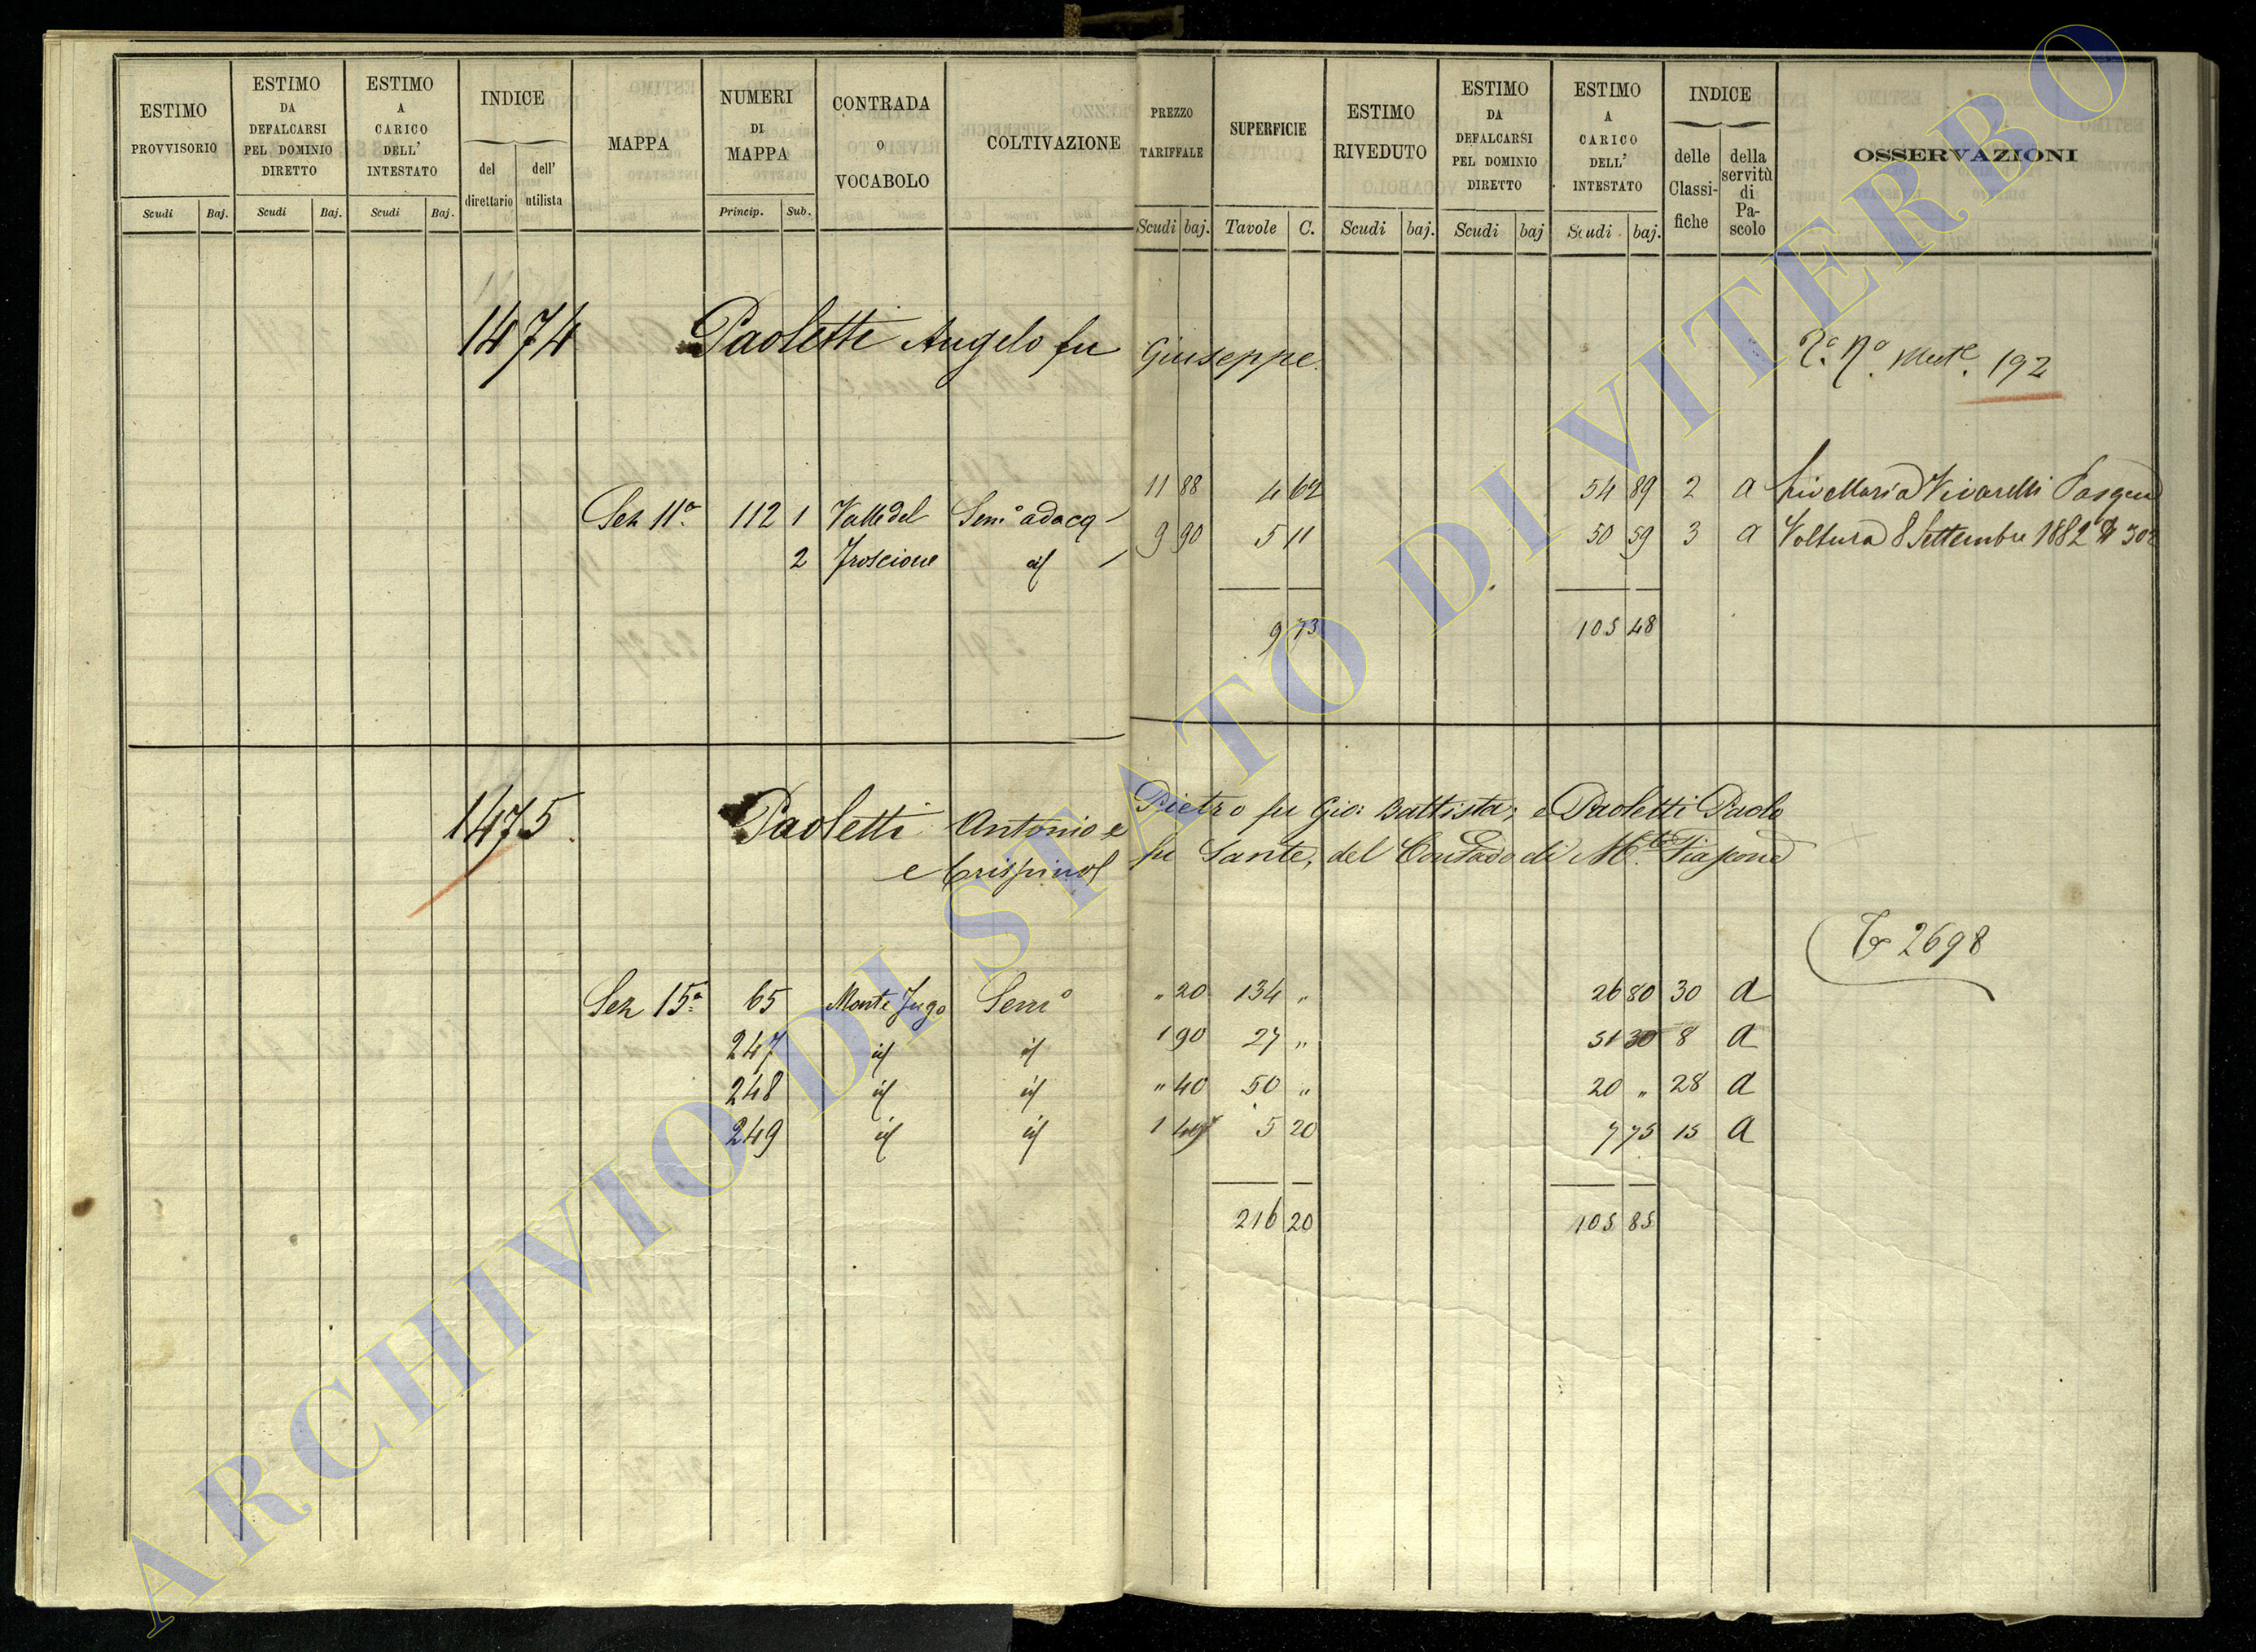 ESTIMO PROVVISORIO Scudi Baj.
ESTIMO DA DEFALCARSI PEL DOMINIO DIRETTO Scudi Baj.
ESTIMO A CARICO DELL' INTESTATO Scudi Baj.
INDICE del direttario dell' utilista
MAPPA
NUMERI DI MAPPA Princip. Sub.
CONTRADA O VOCABOLO
COLTIVAZIONE
PREZZO TARIFFALE Scudi baj.
SUPERFICIE Tavole C.
ESTIMO RIVEDUTO Scudi baj.
ESTIMO DA DEFALCARSI PEL DOMINIO DIRETTO Scudi baj
ESTIMO A CARICO DELL' INTESTATO Scudi baj.
INDICE delle Classifiche della servitù di Pascolo
OSSERVAZIONI
1474 Paoletti Angelo fu Giuseppe. 192
Sez 11ª 112 1 Valle del Semº adacq 11 88 4 62 54 89 2 a Maria Vivarelli
2 Troscione id 9 90 5 11 50 59 3 a Voltura 8 Settembre 1882 N 302
9 73 105 48
1475 Paoletti Antonio e Pietro fu Gio: Battista; e Paoletti Paolo
e Crispino fu Sante, del Contado di M.te Fiascone
2698
Sez 15ª 65 Monte Jugo Semº " 20 134 " 26 80 30 a
247 id id 1 90 27 " 51 30 8 a
248 id id " 40 50 " 20 " 28 a
249 id id 1 49 5 20 7 75 15 a
216 20 105 85
ARCHIVIO DI STATO DI VITERBO